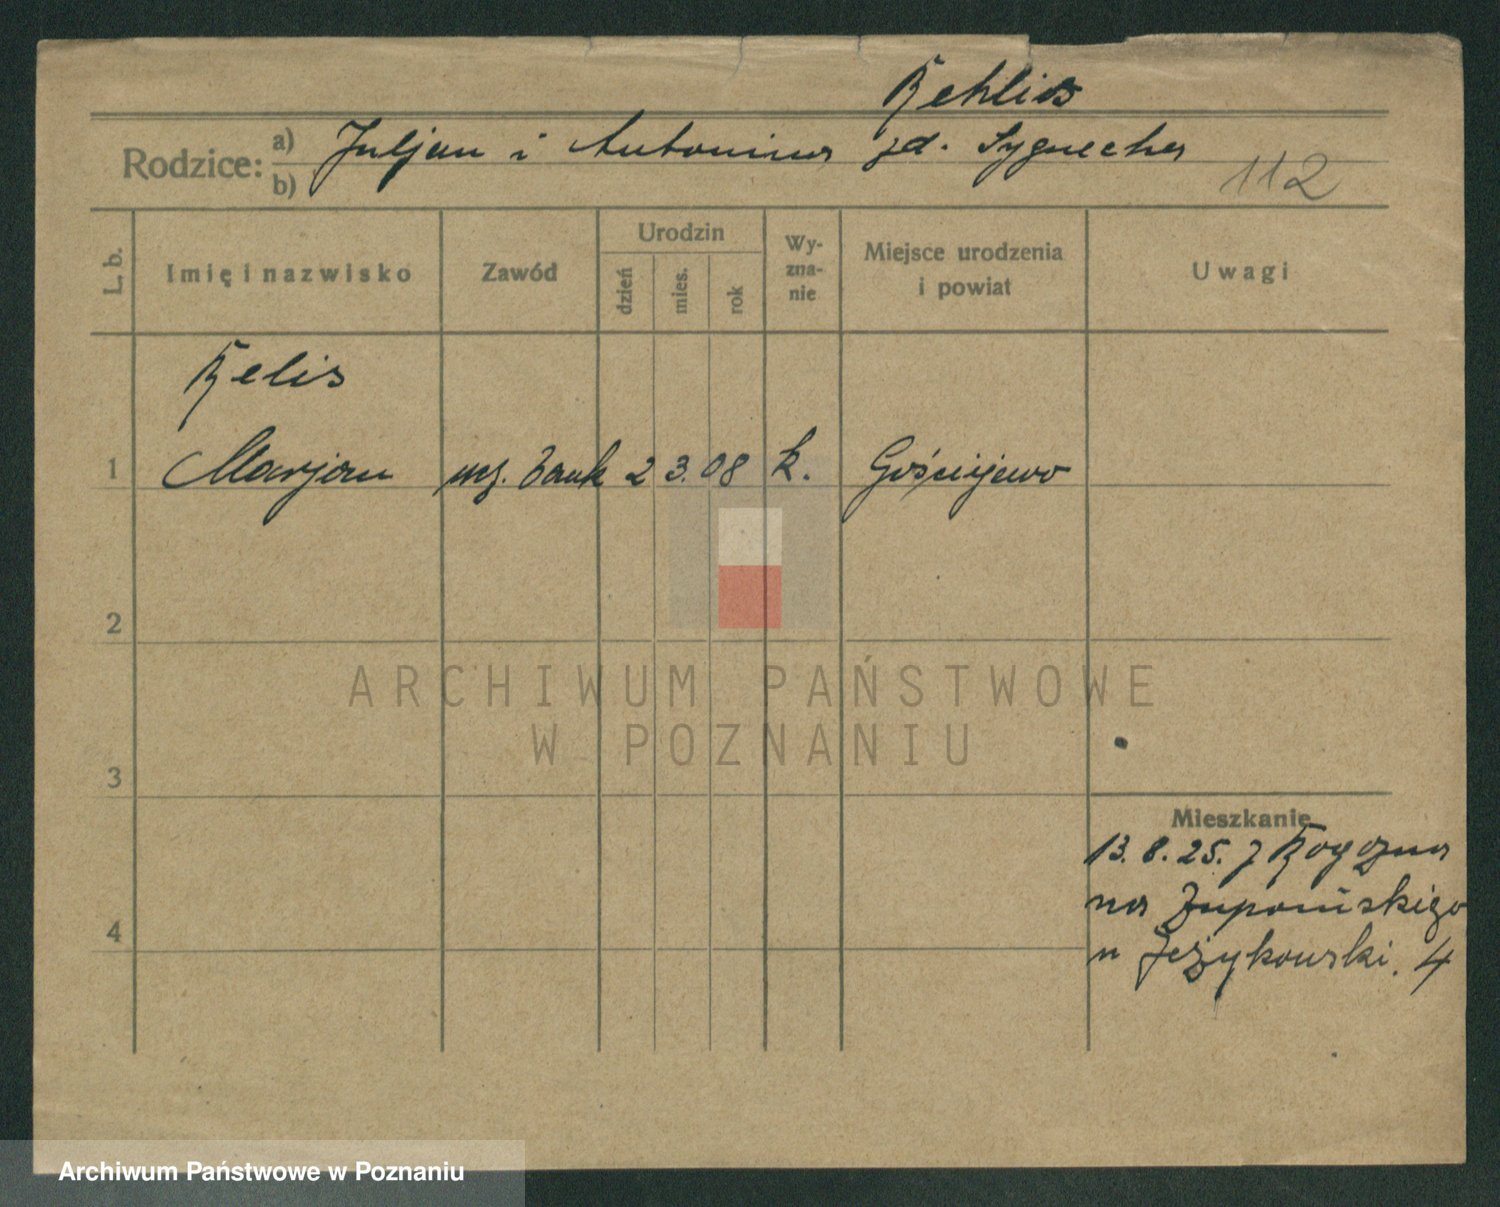 Rehlis
Rodzice: a) Juljan i Antonina zd. Sygnecka
b)
112
L. b. Imię i nazwisko Zawód Urodzin dzień mies. rok Wyznanie Miejsce urodzenia i powiat Uwagi
Relis
1 Marjan urz. bank 2 3. 08 k. Gościejewo
2
3
4
Mieszkanie
13. 8. 25. z Rogozna
na Żupańskiego
u Jeżykowski. 4
ARCHIWUM PAŃSTWOWE
W POZNANIU
Archiwum Państwowe w Poznaniu